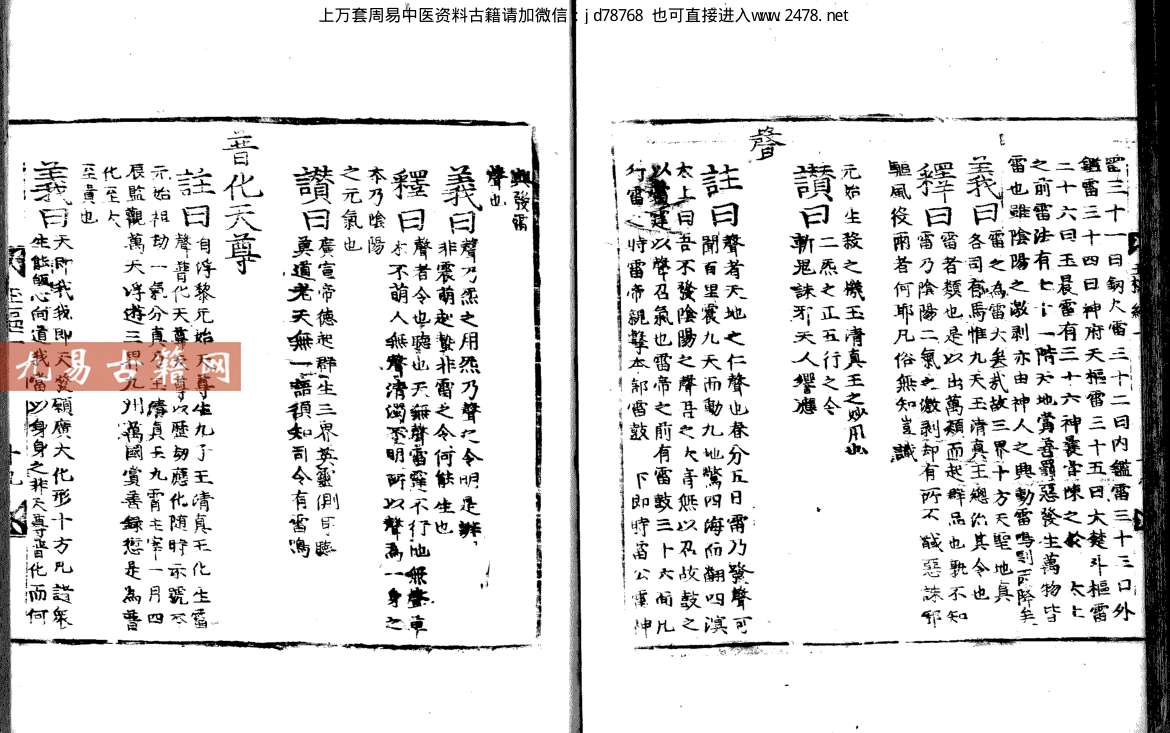 上万套周易中医资料古籍请加微信：jd78768 也可直接进入www.2478.net
雷三十一曰鈎欠雷三十二曰内鑑雷三十三曰外
鑑雷三十四曰神府天樞雷三十五曰大梵斗樞雷
二十六曰玉晨雷有三十六神雷之太上
之前雷法有七十一階天地賞善罰惡發生萬物皆
雷也雖陰陽之激剥亦由神人之興動雷鳴則雨降矣
義曰雷之為雷大矣哉故三界十方天聖地真
各司焉惟九天玉清真王總治其令也
釋曰雷者類也是以出萬類而起群品也孰不知
雷乃陰陽二氣之激剥却有所不誠惡誅邪
驅風役雨者何耶凡俗無知豈識
元始生殺之機玉清真王之妙用也
讃曰二炁之正五行之令
斬鬼誅邪天人響應
聲
註曰聲者天地之仁聲也春分五日雷乃發聲可
聞百里震九天而動九地驚四海而翻四溟
太上曰吾不發陰陽之聲吾之大音無以召故鼓之
以雷霆以聲召氣也雷帝之前有雷鼓三十六面凡
行雷之時雷帝親擊本部雷鼓一下即時雷公雷神
興發雷
聲也
義曰聲乃炁之用炁乃聲之令明是
非震萌起蟄非雷之令何能生也
釋曰聲者令也聽也天無聲雷霆不行地無聲草
木不萌人無聲清濁不明所以聲為一身之
本乃陰陽
之元氣也
讃曰廣宣帝德起群生三界英靈側耳聽
莫道老天無一語須知司令有雷鳴
普化天尊
註曰自浮黎元始天尊生九子玉清真王化生雷
聲普化天尊天尊以歷劫應化随時示號不
元始祖劫一氣分真乃玉清真王九霄主宰一月四
辰監觀萬天浮遊三界九州萬國賞善録愆是為普
化至大
至貴也
義曰天即我我即天發願廣大化形十方凡諸衆
生能傾心向道我當以身身之非天尊普化而何
九易古籍网